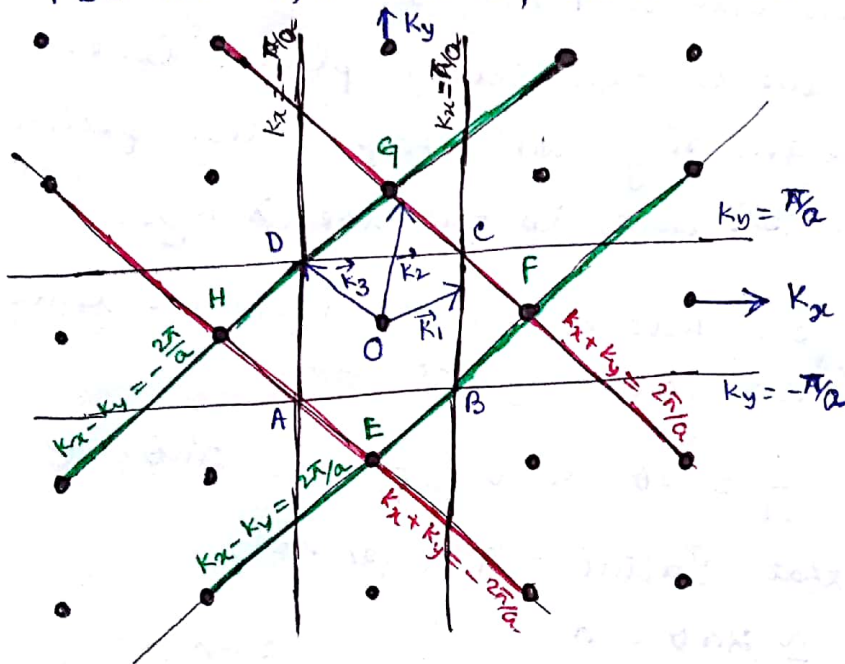 Ky
Kx = -π/a
Kx = π/a
G
Ky = π/a
D
C
K⃗3
K⃗2
F
H
K⃗1
Kx
O
Kx - Ky = - 2π/a
Kx + Ky = 2π/a
Ky = -π/a
A
B
E
Kx - Ky = 2π/a
Kx + Ky = - 2π/a